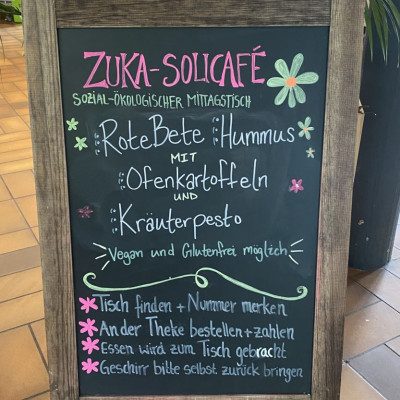 ZUKA-SOLICAFÉ
SOZIAL-ÖKOLOGISCHER MITTAGSTISCH
Rote Bete Hummus
MIT
Ofenkartoffeln
UND
Kräuterpesto
Vegan und Glutenfrei möglich
Tisch finden + Nummer merken
An der Theke bestellen + zahlen
Essen wird zum Tisch gebracht
Geschirr bitte selbst zurück bringen